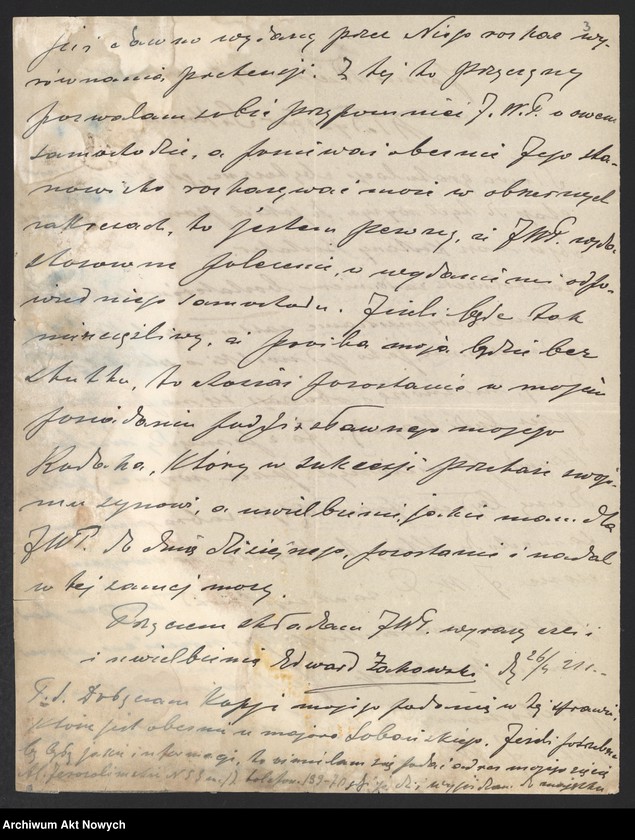 3
już dawno wydany przez Niego rozkaz wy-
równania pretensji. Z tej to przyczyny
pozwalam sobie przypomnieć J.W.P. o owem
samochodzie, a ponieważ obecnie Jego sta-
nowisko rozkazywać może w obszernych
zakresach, to jestem pewny, że JWP. wyda
stosowne polecenie, o wydanie mi odpo-
wiedniego samochodu. Jeżeli będę tak
nieszczęśliwy, że prośba moja będzie bez
skutku, to chociaż pozostanie w mojem
posiadaniu podpis sławnego mojego
Rodaka, który w sukcesji przekażę swoje-
mu synowi, a uwielbienie jakie mam dla
JWP. do dnia dzisiejszego, pozostanie i nadal
w tej samej mocy.
Przyczem składam JWP. wyrazy czci i
i uwielbienia Edward Żakowski 26/4 21 r.
P.S. Dołączam kopję mojego podania w tej sprawie
które jest obecnie u majora Łobońskiego. Jeżeli potrzebne
by były jakie informacje, to ośmielam się podać adres mojego zięcia
Al. Jerozolimskie N 53 m. telefon.
Archiwum Akt Nowych